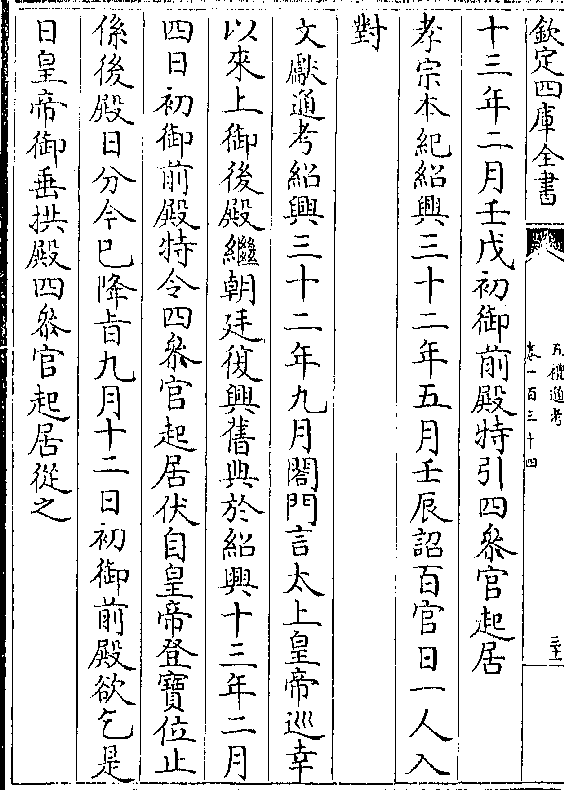 欽定四庫全書
五禮通考
卷一百三十四
三十三
十三年二月壬戌初御前殿特引四參官起居
孝宗本紀紹興三十二年五月壬辰詔百官日一人入
對
文獻通考紹興三十二年九月閤門言太上皇帝巡幸
以來上御後殿繼朝廷復興舊典於紹興十三年二月
四日初御前殿特令四參官起居伏自皇帝登寶位止
係後殿日分今已降旨九月十二日初御前殿欲乞是
日皇帝御垂拱殿四參官起居從之